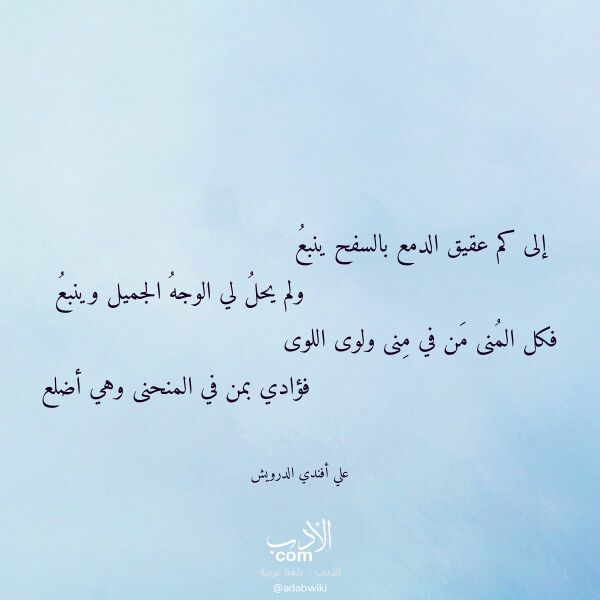 إلى كم عقيق الدمع بالسفح ينبعُ
ولم يحلُ لي الوجهُ الجميل وينبعُ
فكل المُنى مَن في مِنى ولوى اللوى
فؤادي بمن في المنحنى وهي أضلع
علي أفندي الدرويش
الأدب
com
الأدب .. بلغة عربية
@adabwiki